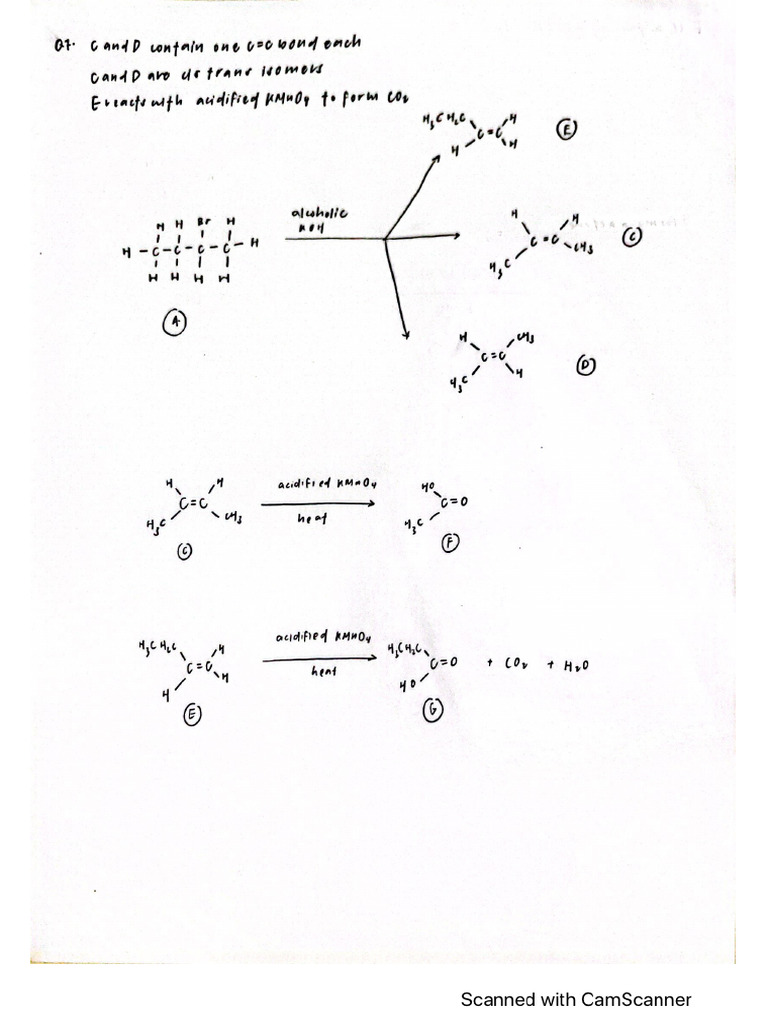 Q7. C and D contain one C=C bond each
C and D are cis trans isomers
E reacts with acidified KMnO4 to form CO2
H3CH2C H
C=C
H H
E
alcoholic
KOH
H H Br H
H-C-C-C-C-H
H H H H
A
H H
C=C
H3C CH3
C
H CH3
C=C
H3C H
D
H H
C=C
H3C CH3
C
acidified KMnO4
heat
HO
C=O
H3C
F
H3CH2C H
C=C
H H
E
acidified KMnO4
heat
H3CH2C
C=O + CO2 + H2O
HO
G
Scanned with CamScanner